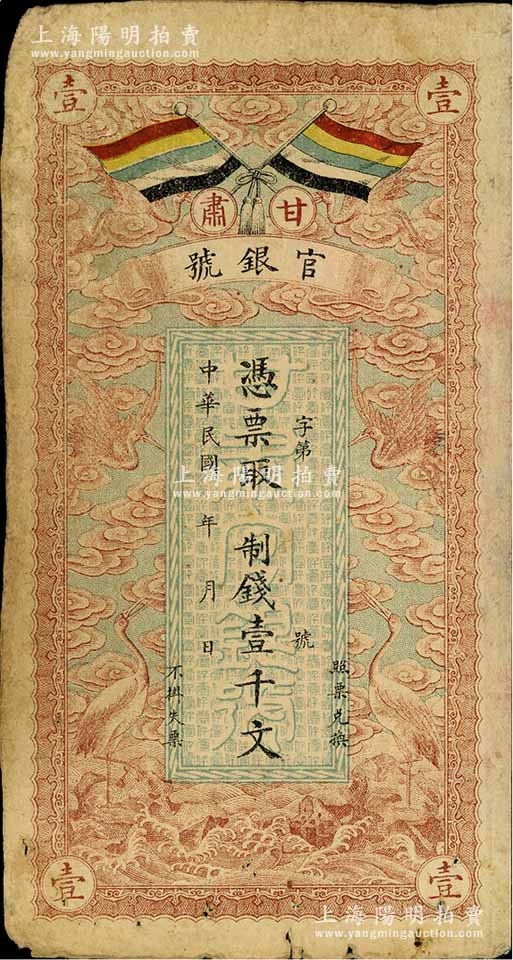 上海陽明拍賣
www.yangmingauction.com
壹
壹
甘肅
官銀號
字第 號
憑票取制錢壹千文
中華民國 年 月 日
照票兌換
不掛失票
上海陽明拍賣
www.yangmingauction.com
壹
壹
上海陽明拍賣
www.yangmingauction.com